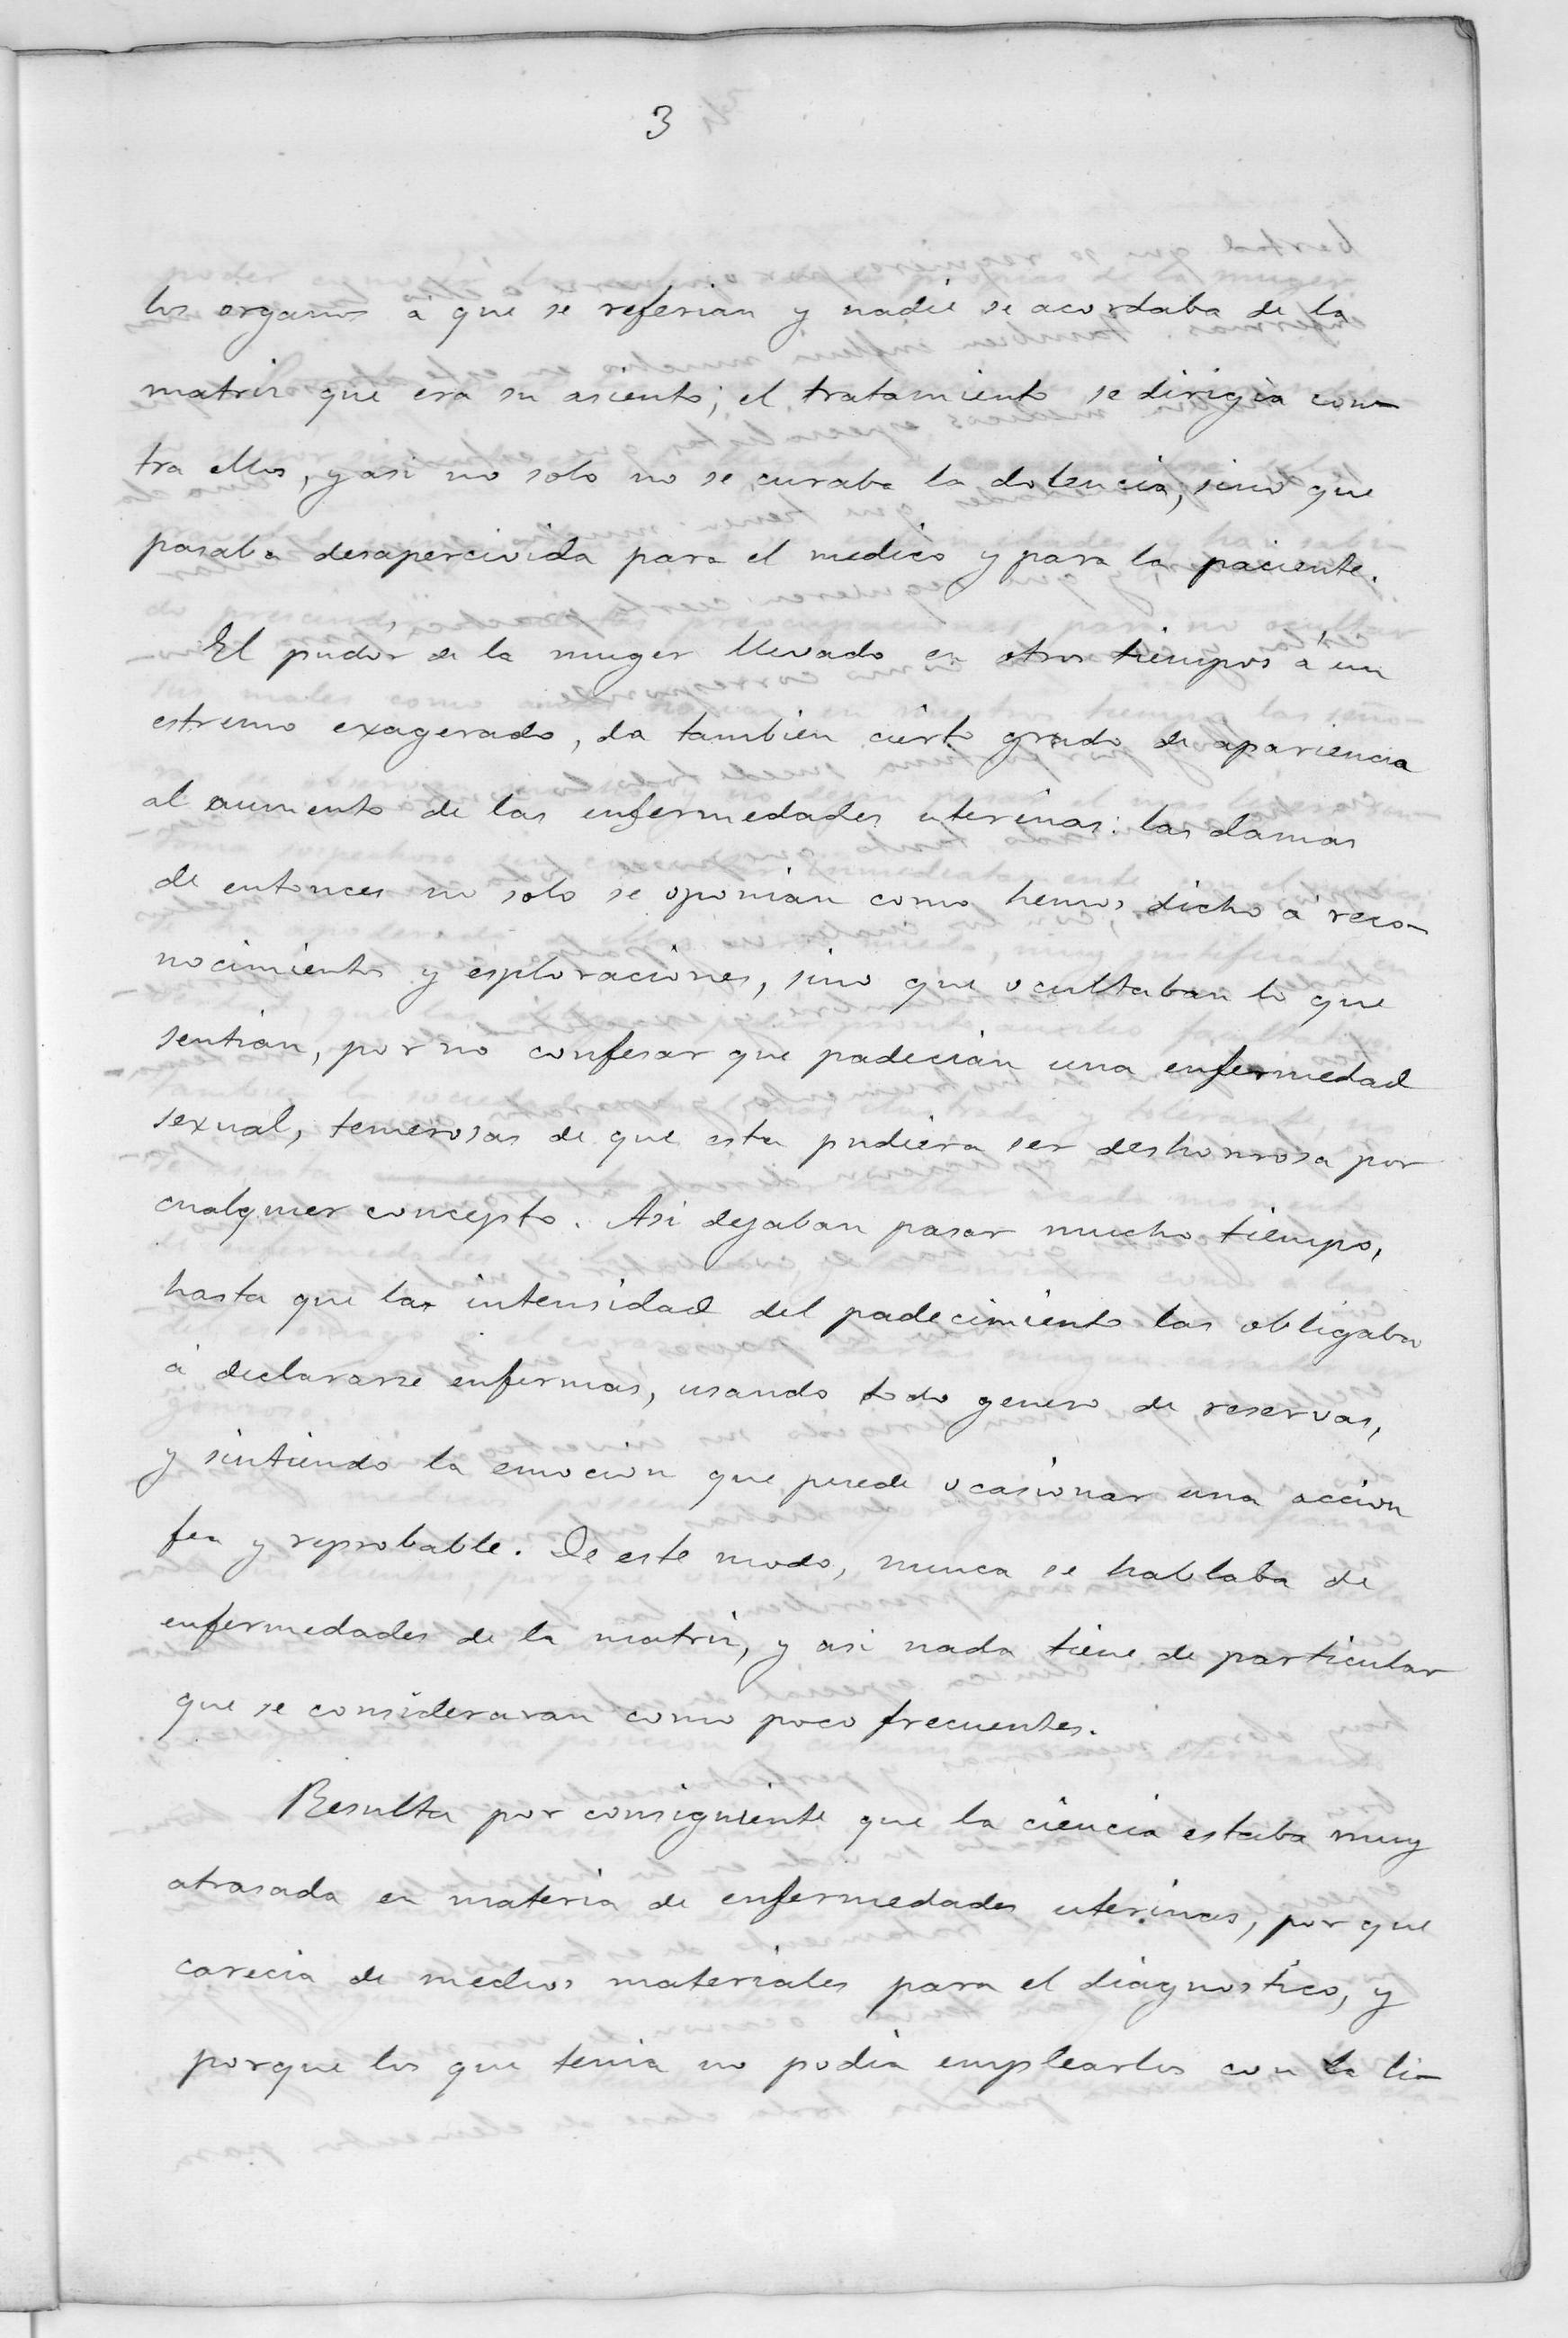 3
los organos á que se referian y nadie se acordaba de la
matriz que era su asiento; el tratamiento se dirigia con-
tra ellos, y asi no solo no se curaba la dolencia, sino que
pasaba desapercivida para el medico y para la paciente.
El pudor de la muger llevado en otros tiempos á un
estremo exagerado, da tambien cierto grado de apariencia
al aumento de las enfermedades uterinas: las damas
de entonces no solo se oponian como hemos dicho á reco-
nocimientos y esploraciones, sino que ocultaban lo que
sentian, por no confesar que padecian una enfermedad
sexual, temerosas de que esta pudiera ser deshonrosa por
cualquier concepto. Asi dejaban pasar mucho tiempo,
hasta que la intensidad del padecimiento las obligaba
á declararse enfermas, usando todo genero de reservas,
y sintiendo la emocion que puede ocasionar una accion
fea y reprobable. De este modo, nunca se hablaba de
enfermedades de la matriz, y asi nada tiene de particular
que se consideraran como poco frecuentes.
Resulta por consiguiente que la ciencia estaba muy
atrasada en materia de enfermedades uterinas, por que
carecia de medios materiales para el diagnostico, y
porque los que tenia no podia emplearlos con la li-